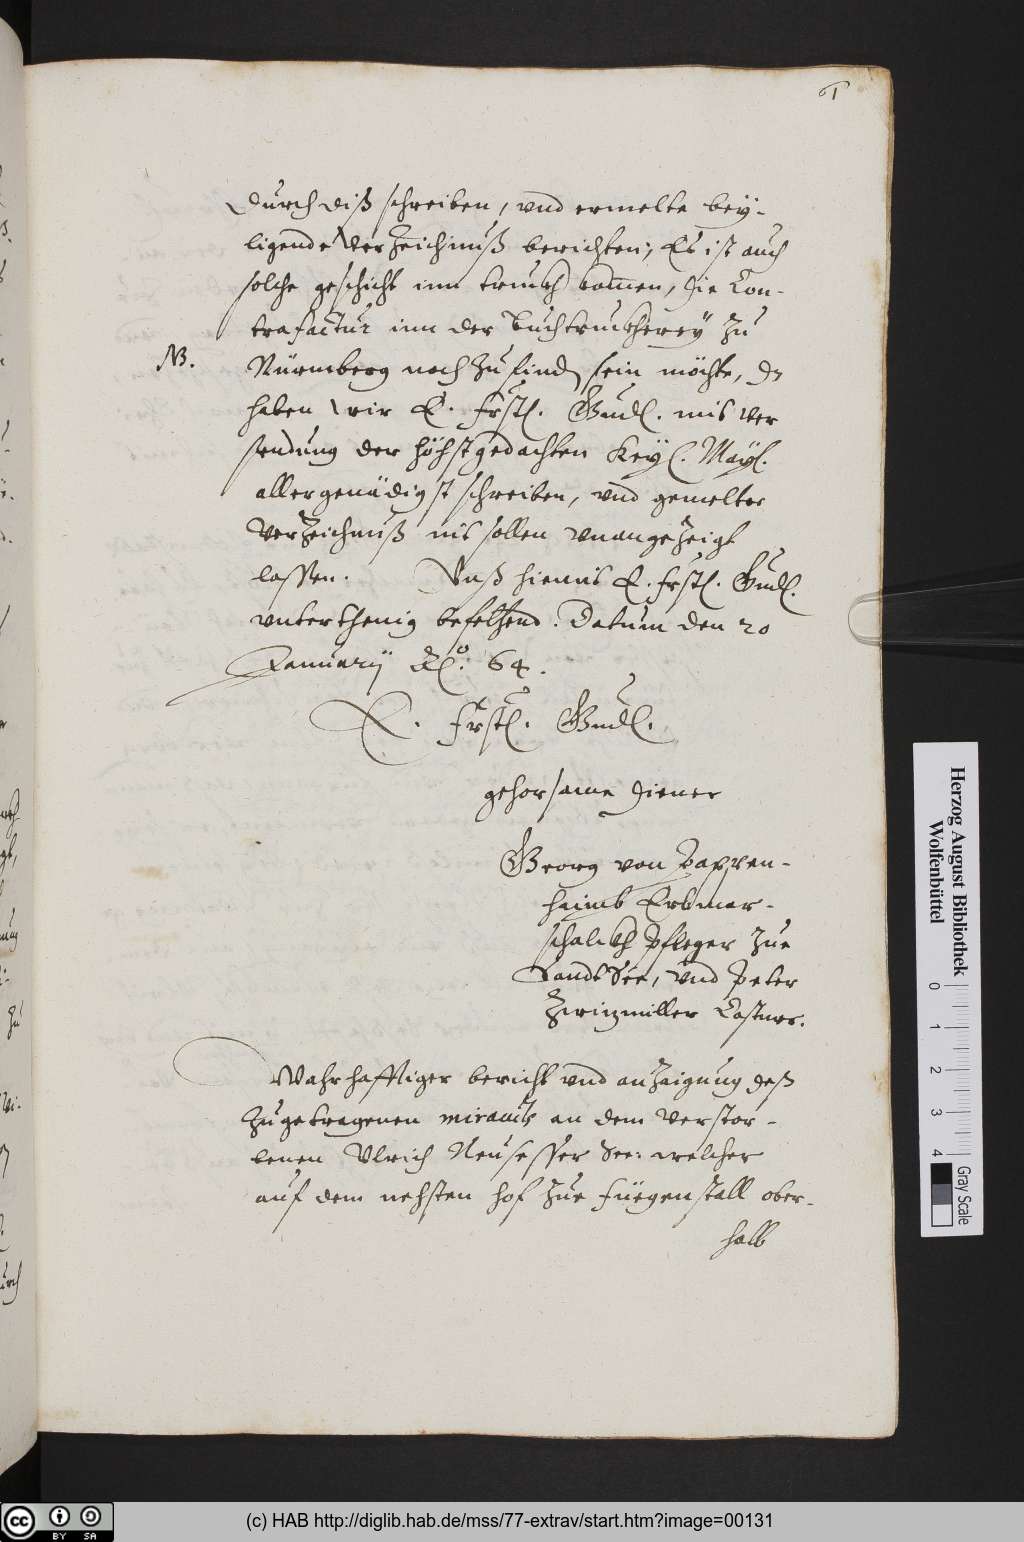 61
durch diß schreiben, vnd ermelte bey-
ligende Verzeichnuß berichten; Es ist auch
solche geschicht inn truckh komen, die Con-
trafactur inn der Buchtruckherey zu
NB.
Nürmberg noch zu find sein möchte, dz
haben wir E. Frstl. Gndl. mit ver
sendung der höchstgedachten Keyl. Mayl.
allergenädigst schreiben, vnd gemelter
Verzeichnuß nit sollen vnangezeigt
lassen. Vnß hiemit E. Frstl. Gndl.
vnterthenig befelhend. Datum den 20
Januarij Ao: 64.
E. Frstl. Gndl.
gehorsame diener
Georg von Pappen-
haimb Erbmar-
schalckh Pfleger zue
SandtSee, vnd Peter
Zwizmiller Castner.
Wahrhafftiger bericht vnd anzaigung deß
zugetragenen miraculs an dem verstor-
benen Vlrich Neusesser See: welcher
auf dem nehsten hof zue Füegenstall ober-
halb
Herzog August Bibliothek
Wolfenbüttel
0 1 2 3 4
Gray Scale
cc BY SA
(c) HAB http://diglib.hab.de/mss/77-extrav/start.htm?image=00131